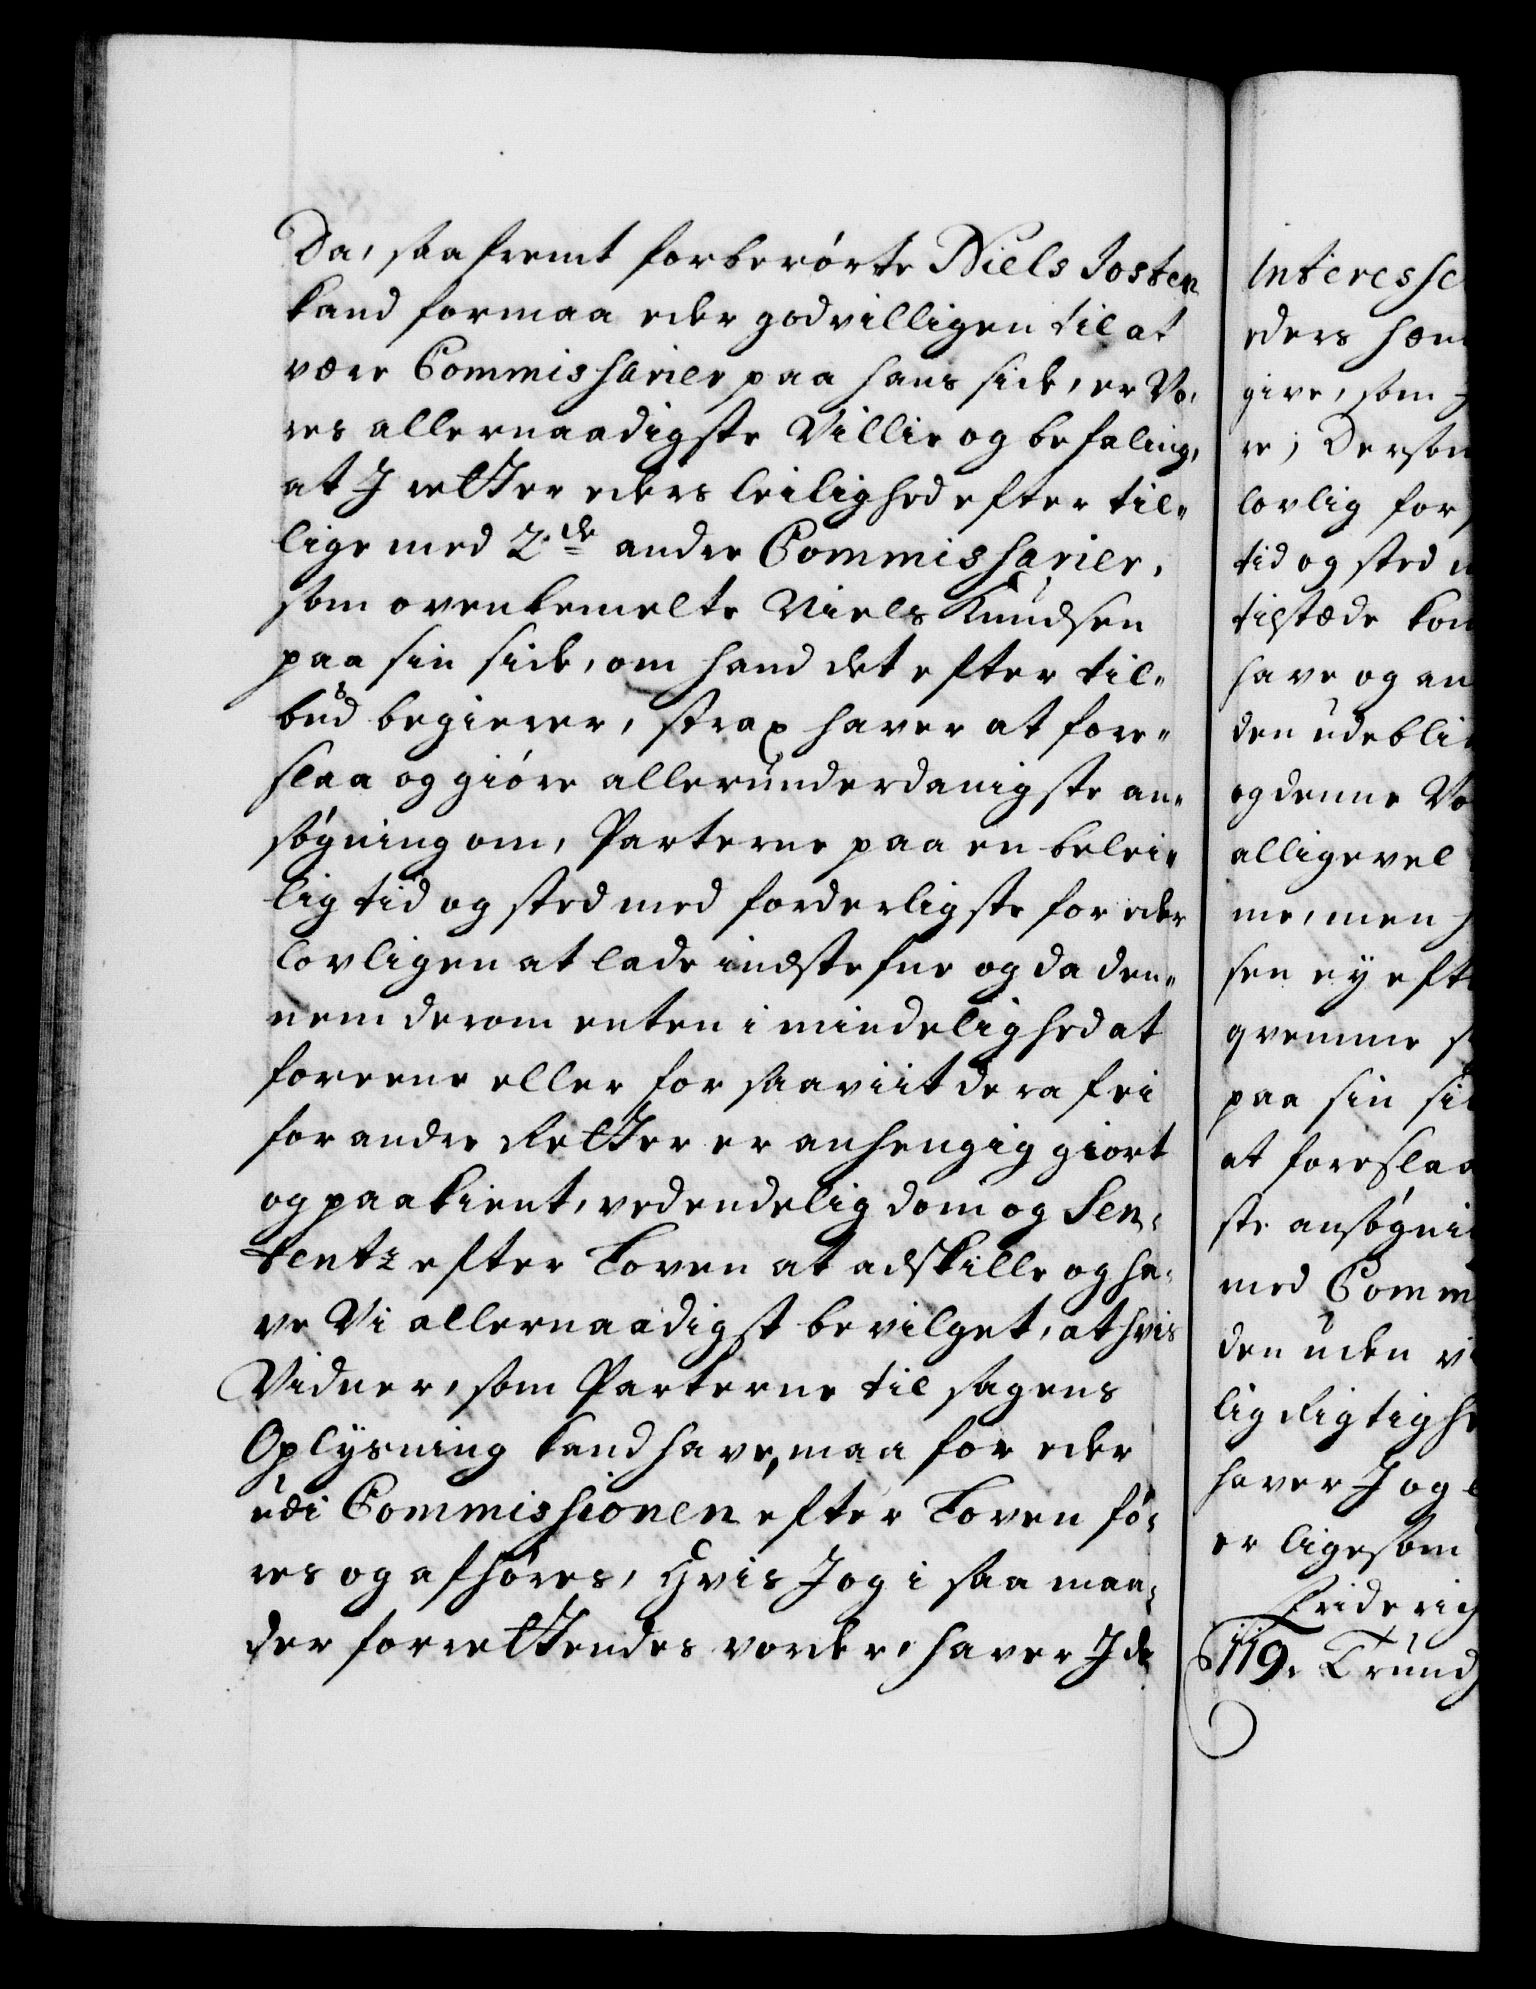 Da, saafremt forberørte Niels Iosten
kand formaa eder godvilligen til at
være Commissarier paa hans side, er Vo,
res allernaadigste Villie og befaling,
at J retter eders leilighed efter til„
lige med 2de andre Commissarier,
som ovenbemelte Niels Knudsen
paa sin side, om hand det efter til„
bud begierer, strax haver at fore„
slaa og giøre allerunderdanigste an„
søgning om, Parterne paa en belei„
lig tid og sted med forderligste for eder
lovligen at lade indstefne og da den„
nem derom enten i mindelighed at
foreene eller for saaviit deraf ei
for andre Retter er anhengig giort
og paakient, ved endelig dom og Sen„
tentz efter Loven at adskille og ha„
ve Vi allernaadigst bevilget, at hvis
Vidner, som Parterne til sagens
Oplysning kand have, maa for eder
udi Commissionen efter Loven fø„
res og afhøres, Hvis J og i saa maa„
der forrettendes vorder, haver J de
Interesse
eders hæn
give, som
re; Derson
lovlig for
tid og sted
tilstæde kom
have og an
den udebli
og denne Vo
alligevel
me, men
sen ey eft
qvemme
paa sin si
at foreslaa
ste ansøgni
med Comm
den uden vi
lig Rigtighe
haver J og
er ligesom
Friderich
119. Trund